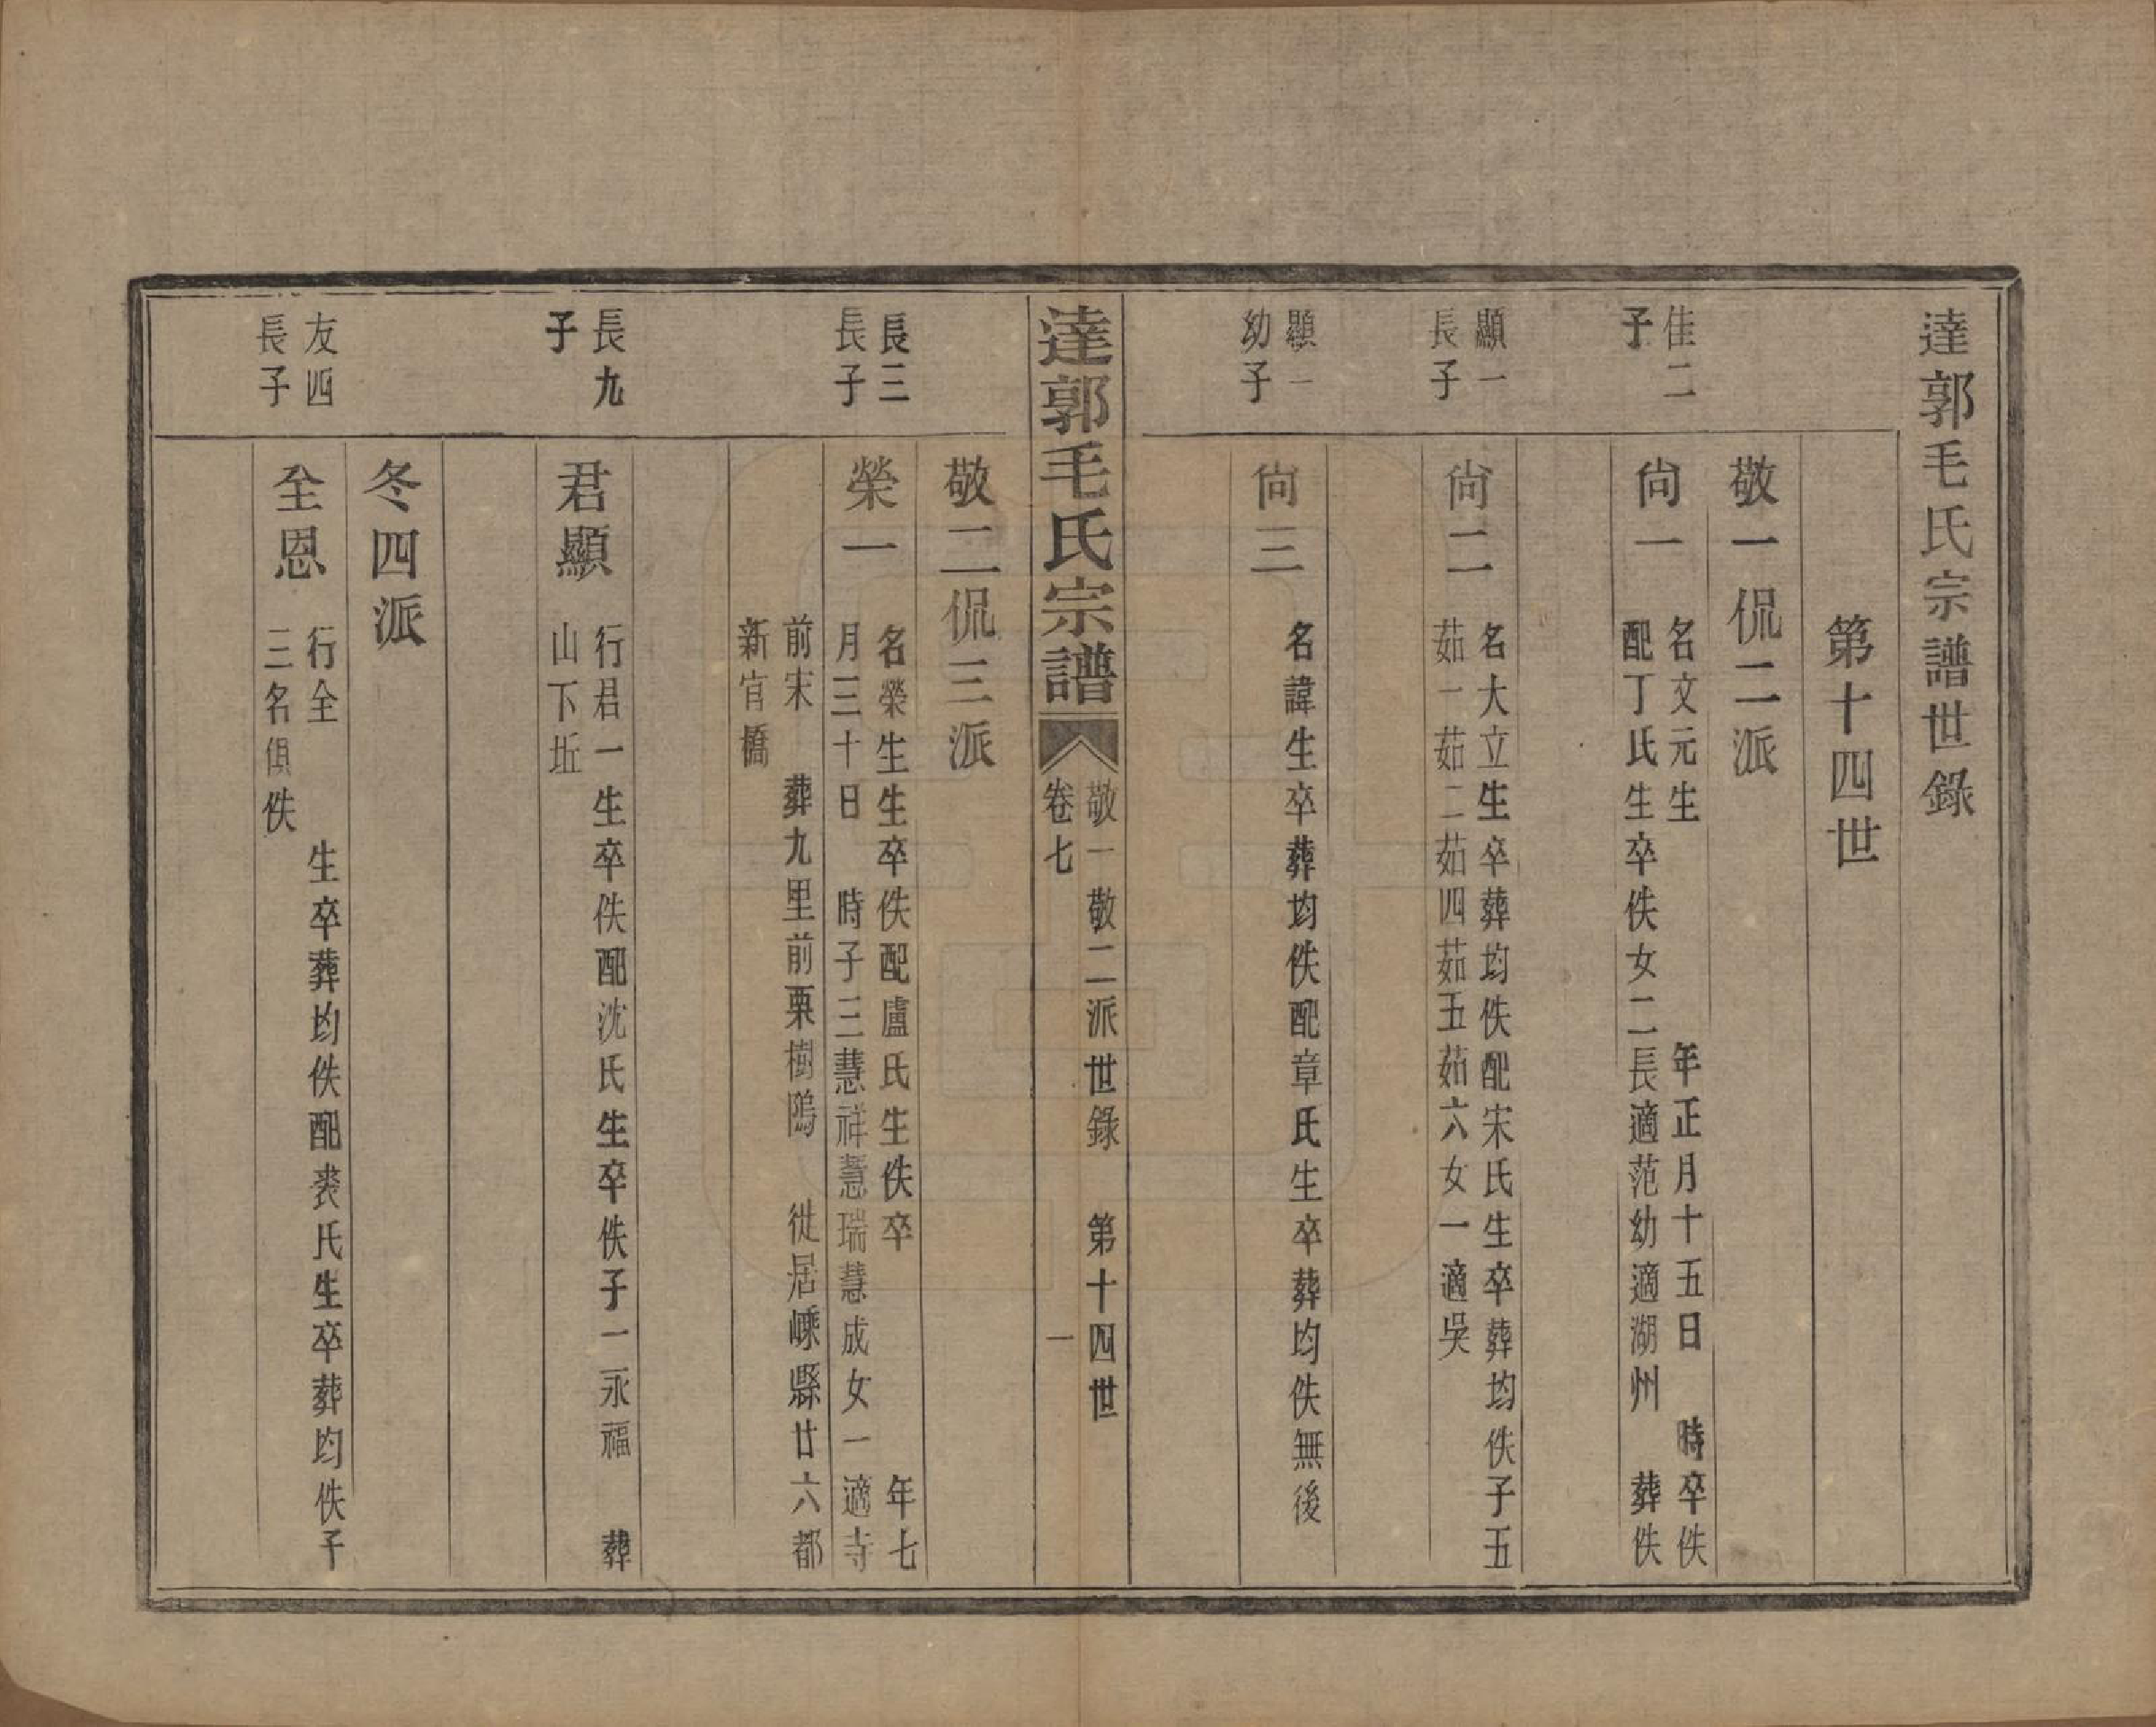 達郭毛氏宗譜世錄
第十四世
敬一侃二派
佳二
子
尙一
名文元生　年正月十五日　時卒佚
配丁氏生卒佚女二長適范幼適湖州　葬佚
顯一
長子
尙二
名大立生卒葬均佚配宋氏生卒葬均佚子五
茹一茹二茹四茹五茹六女一適吳
顯一
幼子
尙三
名諱生卒葬均佚配章氏生卒葬均佚無後
達郭毛氏宗譜
敬一敬二派世錄　第十四世
卷七　一
敬二侃三派
長三
長子
榮一
名榮生生卒佚配盧氏生佚卒　年七
月三十日　時子三慧祥慧瑞慧成女一適寺
前宋　葬九里前栗樹隖　徙居嵊縣廿六都
新官橋
長九
子
君顯
行君一生卒佚配沈氏生卒佚子一永福　葬
山下坵
冬四派
友四
長子
全恩
行全　生卒葬均佚配裘氏生卒葬均佚子
三名俱佚